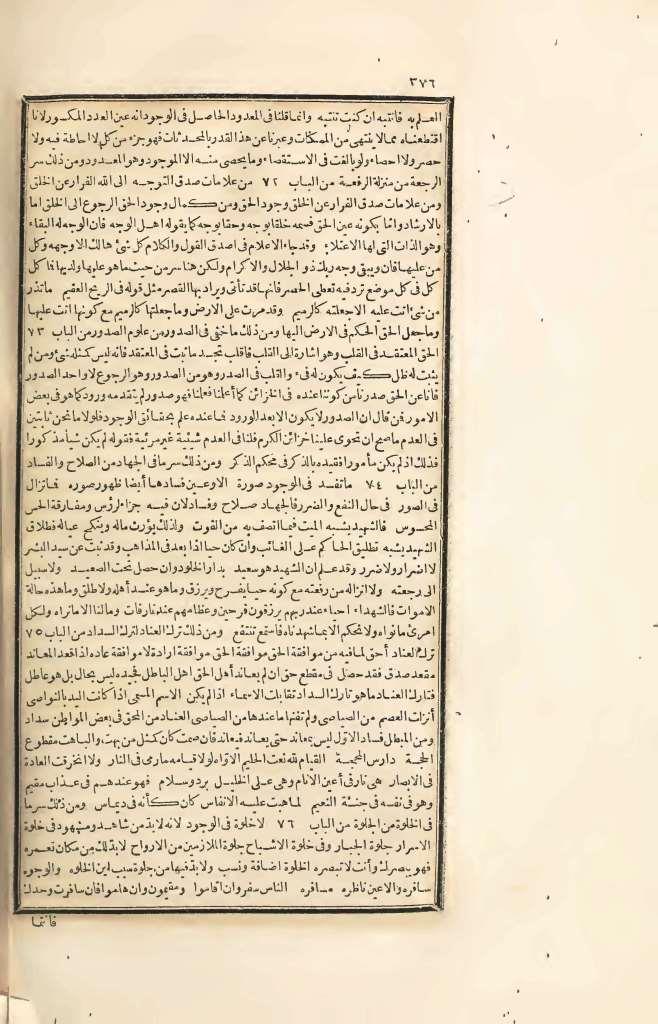 ٣٧٦
العلم به فانتبه ان كنت تنتبه وانما قلنا فى المعدود الحاصل فى الوجود انه عين العدد المكسور لانا
اقتطعناه مما لا ينتهى من الممكنات وعبرنا عن هذا القدر بالمحدثات فهو جزء من كل لا احاطة فيه ولا
حصر ولا احصاء ولو بالغت فى الاستقصاء وما يحصى منه الا الموجود وهو المعدود ومن ذلك سر
الرجعة من منزلة الرفعة من الباب ٧٢ من علامات صدق التوجه الى الله الفرار عن الخلق
ومن علامات صدق الفرار عن الخلق وجود الحق ومن كمال وجود الحق الرجوع الى الخلق اما
بالارشاد واما بكونه عين الحق فسمه خلقا بوجه وحقا بوجه كما يقوله اهل الوجه فان الوجه له البقاء
وهو الذات التى لها الاعتلاء وقد جاء الاعلام فى اصدق القول والكلام كل شئ هالك الا وجهه وكل
من عليها فان ويبقى وجه ربك ذو الجلال والاكرام ولكن هنا سر من حيث ما هو عليها ولديها انما كل
كل فى كل موضع ترد فيه تعطى الحصر فانها قد تأتى ويراد بها القصر مثل قوله فى الريح العقيم ما تذر
من شئ اتت عليه الا جعلته كالرميم وقد مرت على الارض وما جعلتها كالرميم مع كونها اتت عليها
وما جعل الحق الحكم فى الارض اليها ومن ذلك ما خفى فى الصدور من علوم الصدور من الباب ٧٣
الحق المعتقد فى القلب وهو اشارة الى القلب فاقلب تجد ما ثبت فى المعتقد فانه ليس كمثله شئ ومن لم
يثبت له ظل كيف يكون له فىء والقلب فى الصدر وهو من الصدور وهو الرجوع لا واحد الصدور
فانا عن الحق صدرنا من كوننا عنده فى الخزائن كما أعلنا فعلنا فهو صدور لم يتقدمه ورود كما هو فى بعض
الامور فن قال ان الصدور لا يكون الا بعد الورود فما عنده علم بحقائق الوجود فلولا ما نحن ثابتين
فى العدم ما صح ان تحوى علينا خزائن الكرم فلنا فى العدم شيئية غير مرئية فقوله لم يكن شيأ مذكورا
فذلك اذ لم يكن مأمورا فقيده بالذكر فى محكم الذكر ومن ذلك سر ما فى الجهاد من الصلاح والفساد
من الباب ٧٤ ما تفسد فى الوجود صورة الا وعين فسادها أيضا ظهور صوره فما تزال
فى الصور فى حال النفع والضرر فالجهاد صلاح وفساد لان فيه جزاء لرؤس ومفارقة الحس
المحسوس فالشهيد يشبه الميت فيما اتصف به من الفوت ولذلك يؤرث ماله وينكح عياله فطلاق
الشهيد يشبه تطليق الحاكم على الغائب وان كان حيا اذا بعد فى المذاهب وقد ثبت عن سيد البشر
لا اضرار ولا ضرر وقد علم ان الشهيد هو سعيد بدار الخلود وان حصل تحت الصعيد ولا سبيل
الى رجعته ولا انزاله من رفعته مع كونه حيا يفرح ويرزق وما هو عند أهله ولا طلق وما هذه حالة
الاموات فالشهداء احياء عند ربهم يرزقون فرحين وعظامهم عندنا رفات وما لنا الا ما نراه ولكل
امرئ ما نواه ولا نحكم الا بما شهدناه فاسمع تنتفع ومن ذلك ترك العناد لترك السداد من الباب ٧٥
ترك العناد أحق لما فيه من موافقة الحق موافقة الحق موافقة ارادة لا موافقة عاده اذا قعد المعاند
مقعد صدق فقد حصل فى مقطع حق ان لم يعاند أهل الحق اهل الباطل فجيده ليس بحال بل هو عاطل
فتارك العناد ما هو تارك السداد تقابلت الاسماء اذ لم يكن الاسم المسمى اذا كانت اليد بالنواصى
أنزلت العصم من الصياصى ولم تفتها ما عندها من الصياصى العناد من المحق فى بعض المواطن سداد
ومن المبطل فساد الاول ليس بمعاند حتى يعاند فيعاند فان صمت كان كمثل من بهت والباهت مقطوع
الحجة دارس المحجة القيام لله نعت الحليم الاواه لولا قيامه مارمى فى النار ولا انخرقت العادة
فى الابصار هى نار فى أعين الانام وهى على الخليل برد وسلام فهو عندهم فى عذاب مقيم
وهو فى نفسه فى جنة النعيم لما هبت عليه الانفاس كان كأنه فى ديماس ومن ذلك سر ما
فى الخلوة من الجلوة من الباب ٧٦ لا خلوة فى الوجود لانه لا بد من شاهد ومشهود فى خلوة
الاسرار جلوة الجبار وفى خلوة الاشباح جلوة الملازمين من الارواح لا بد لك من مكان تعمره
فهو يبصرك وأنت لا تبصره الخلوة اضافة ونسب ولا بد فيها من جلوة سبب اين الخلاوه والوجوه
سافره والاعين ناظره مسافره الناس سفر وان اقاموا ومقيمون وان هاموا فان سافرت وحدك
فانما